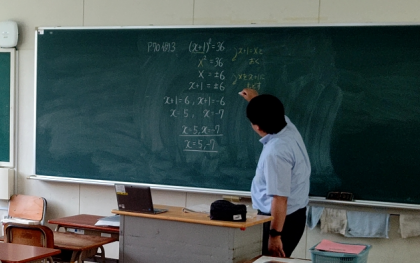 P90 例3 (x+1)²=36
x²=36
x=±6
x+1=±6
x+1=6, x+1=-6
x=5, x=-7
x=5, x=-7
x=5, -7